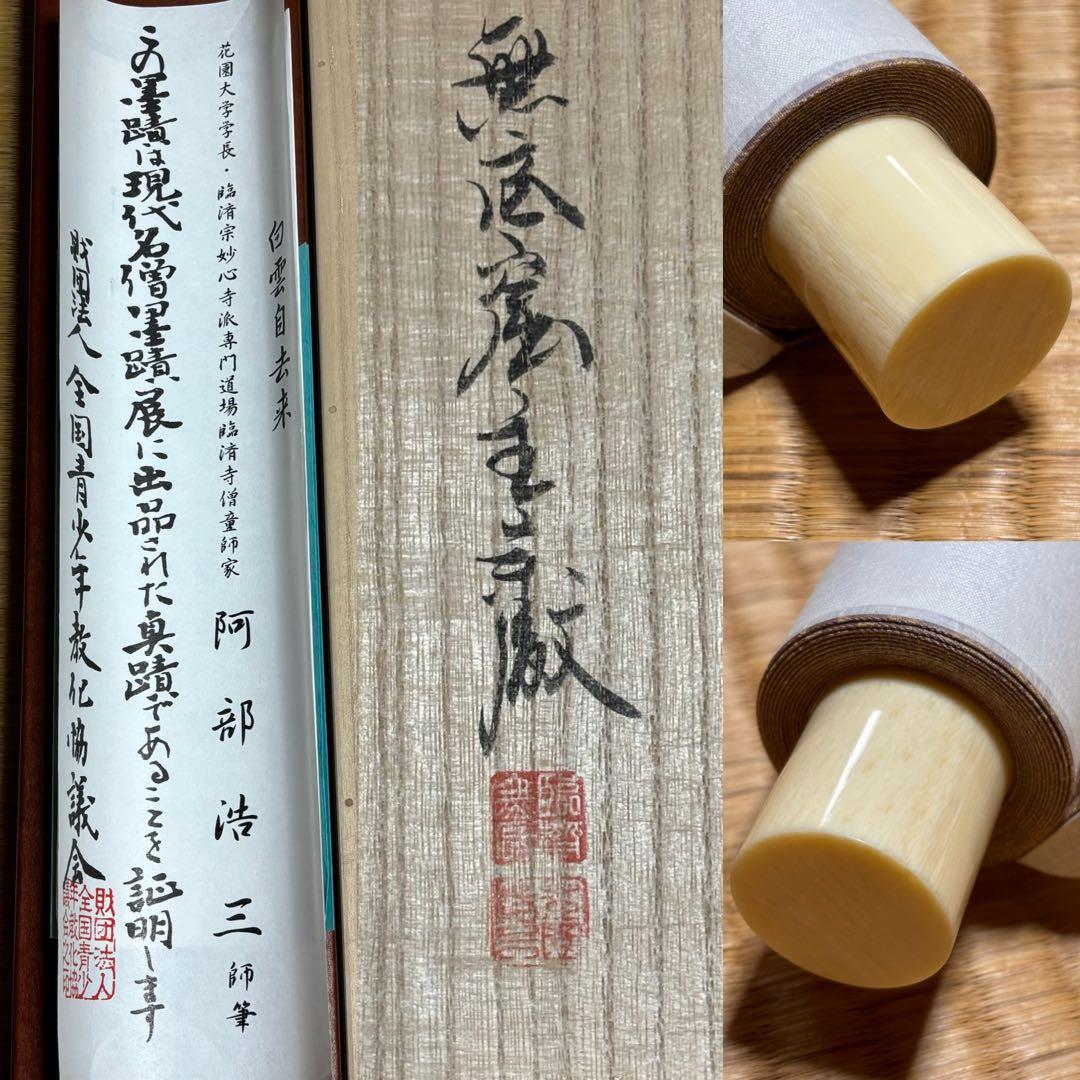 白雲自去来
花園大学学長・臨済宗妙心寺派専門道場臨済寺僧童師家
阿部浩三師筆
この墨蹟は現代名僧墨蹟展に出品された真蹟であることを証明します
財団法人全国青少年教化協議会
財団法人
全国青少
年教化協
議会之印
無底窟主